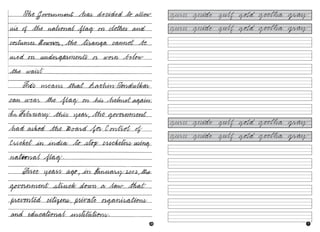 The Government has decided to allow
use of the national flag on clothes and
costumes. However, the tiranga cannot be
used on undergarments or worn below
the waist.
This means that Sachin Tendulkar
can wear the flag on his helmet again.
In February this year, the government
had asked the Board for Control of
Cricket in india to stop cricketers using
national flag.
Three years ago, in January 2002, the
government struck down a law that
prevented citizens, private organisations
and educational institutions.
guru guide gulf gold goetha gray
guru guide gulf gold goetha gray
guru guide gulf gold goetha gray
guru guide gulf gold goetha gray